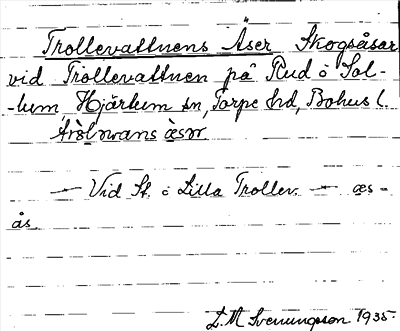 Trollevattnens Åser Skogsåsar
vid Trollevattnen på Rud o Sol-
-lum, Hjärtum sn, Torpe hd, Bohus l.
— Vid St. o Lilla Trollev. — æs =
ås.
D. M Svenungsson 1935.